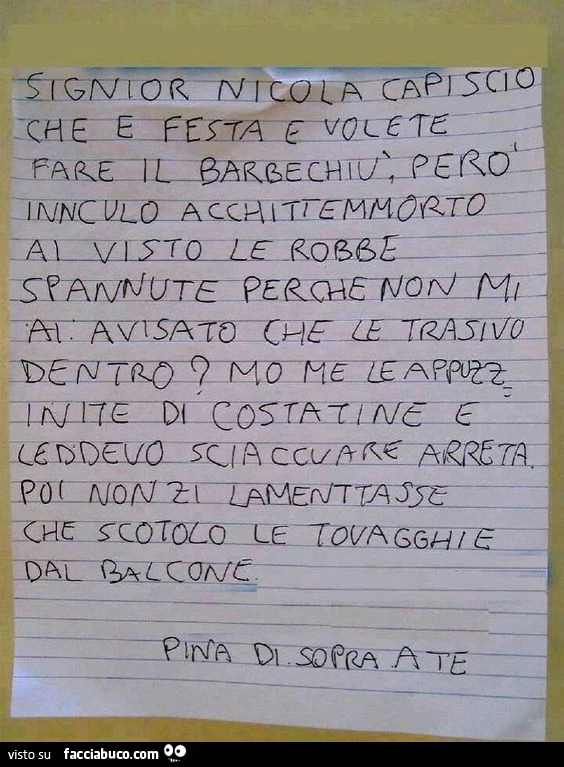 SIGNIOR NICOLA CAPISCIO
CHE E FESTA E VOLETE
FARE IL BARBECHIÙ, PERO'
INNCULO ACCHITTEMMORTO
AI VISTO LE ROBBE
SPANNUTE PERCHE NON MI
AI AVISATO CHE LE TRASIVO
DENTRO? MO ME LE APPUZZ
INITE DI COSTATINE E
LEDDEVO SCIACCUARE ARRETA.
POI NON ZI LAMENTTASSE
CHE SCOTOLO LE TOVAGGHIE
DAL BALCONE.
PINA DI.SOPRA A TE
visto su facciabuco.com